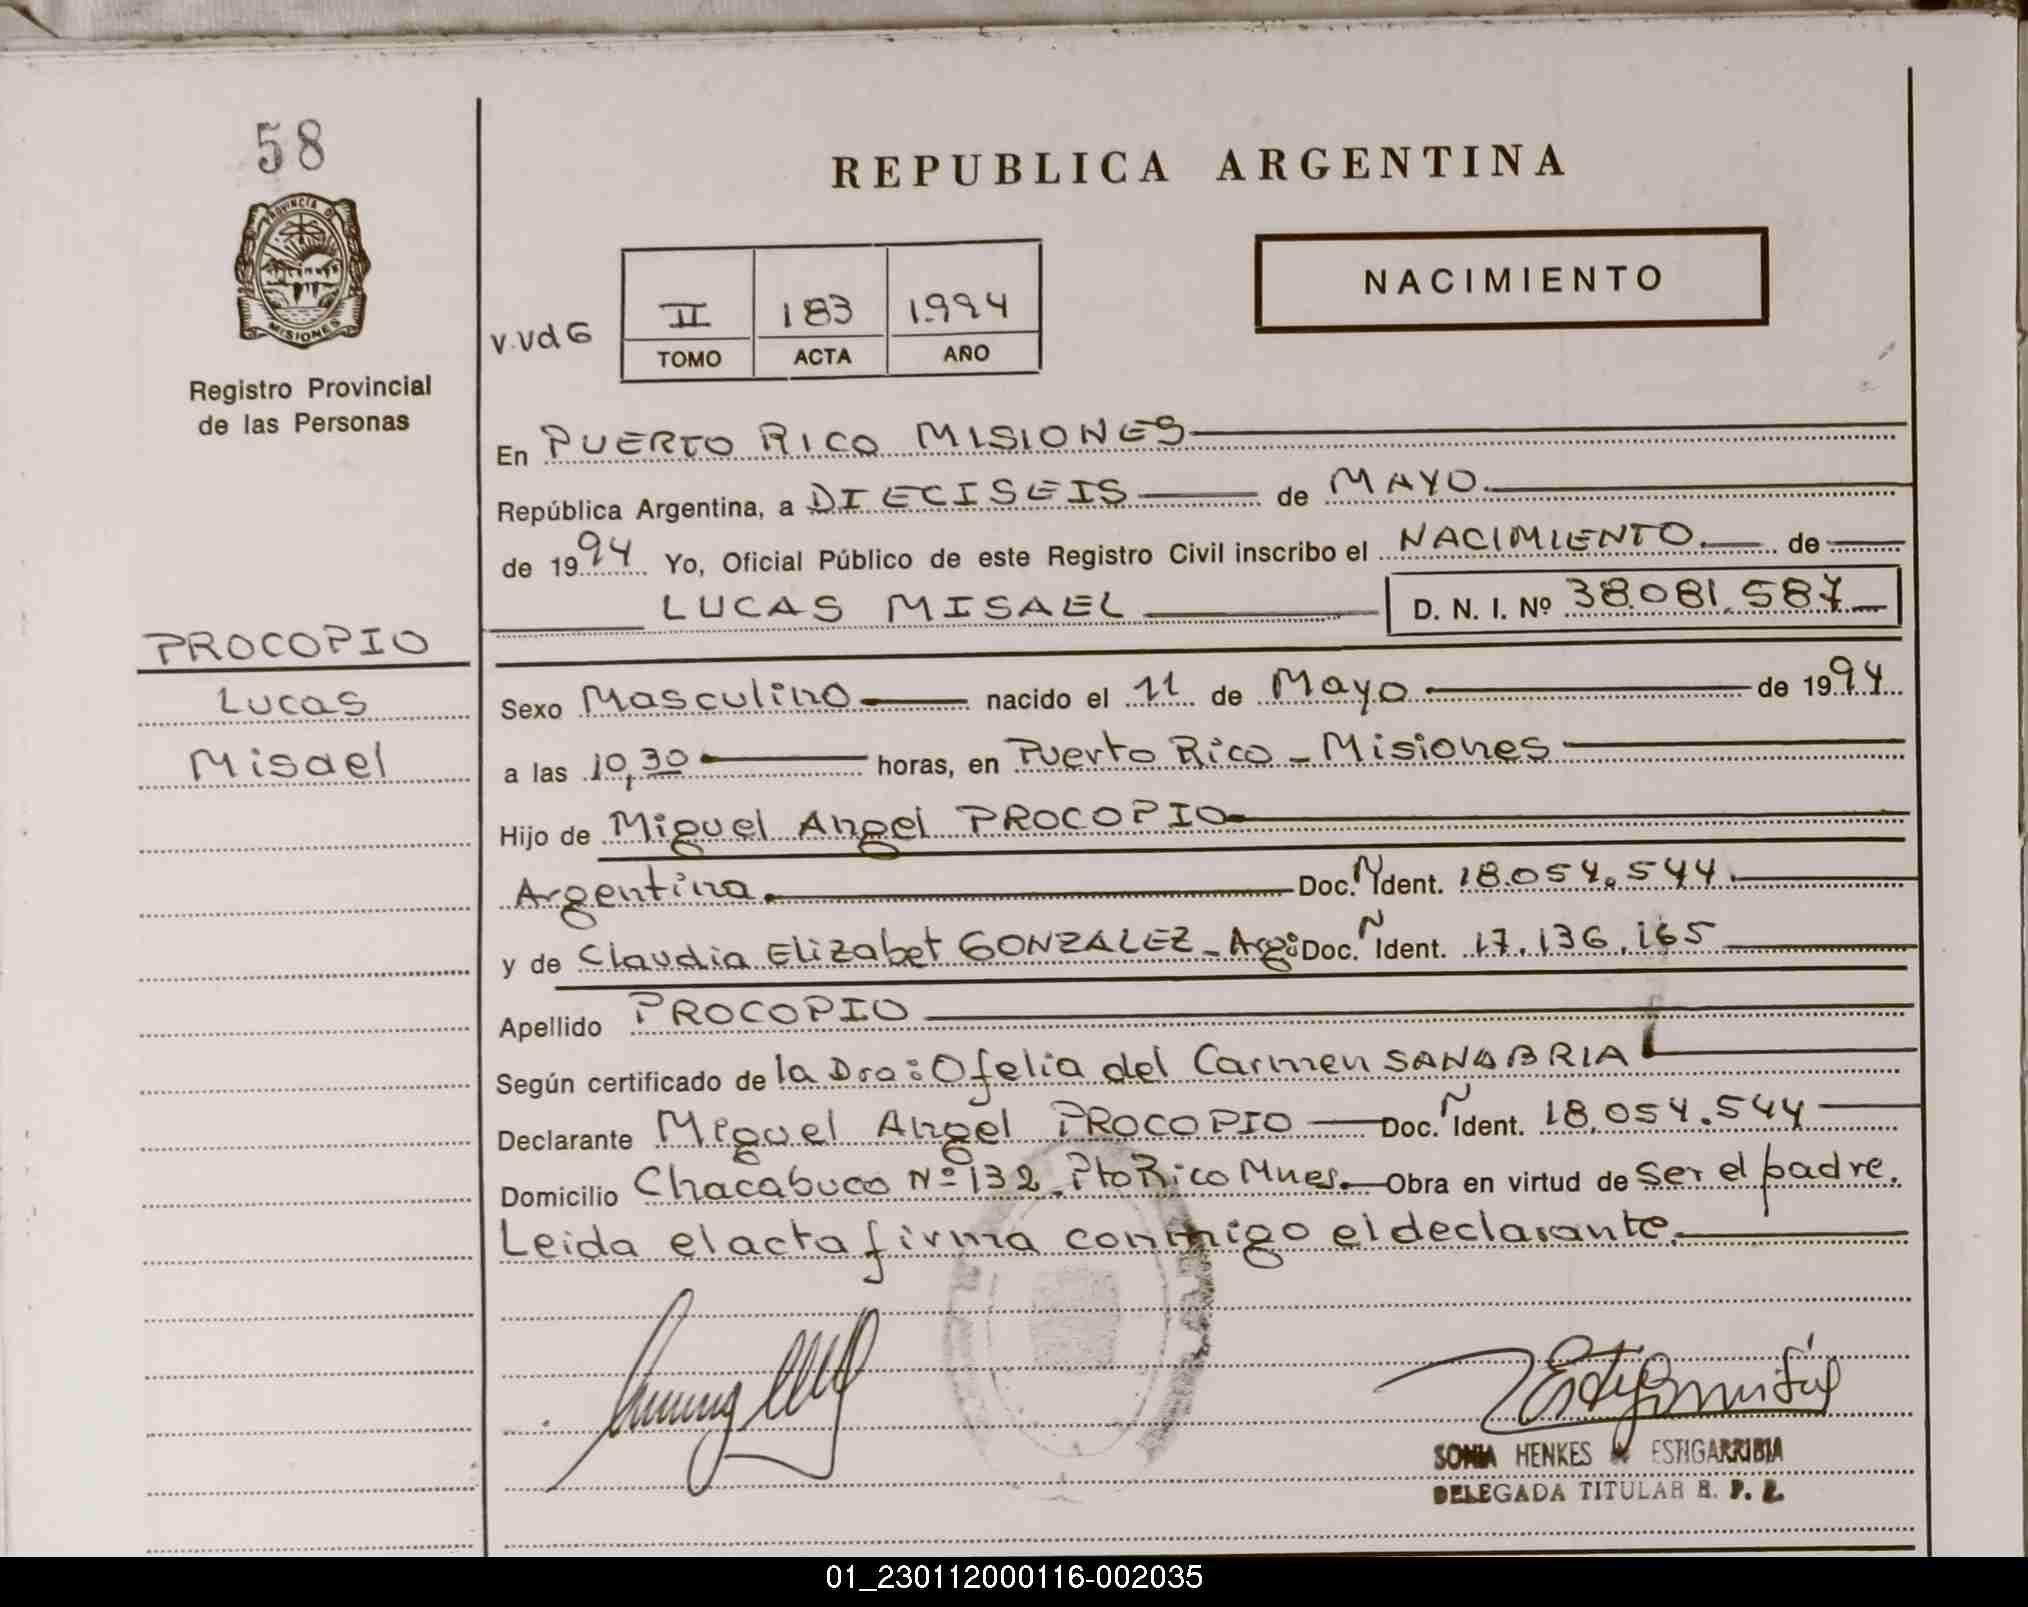 58
PROVINCIA DE
MISIONES
Registro Provincial
de las Personas
REPUBLICA ARGENTINA
NACIMIENTO
V.VdG
II 183 1.994
TOMO ACTA AÑO
En PUERTO RICO MISIONES
República Argentina, a DIECISEIS de MAYO
de 1994 Yo, Oficial Público de este Registro Civil inscribo el NACIMIENTO de
LUCAS MISAEL D. N. I. Nº 38.081.587
PROCOPIO
Lucas
Misael
Sexo Masculino nacido el 11 de Mayo de 1994
a las 10,30 horas, en Puerto Rico - Misiones
Hijo de Miguel Angel PROCOPIO
Argentina. Doc. N Ident. 18.054.544
y de Claudia Elizabet GONZALEZ - Arg: Doc. N Ident. 17.136.165
Apellido PROCOPIO
Según certificado de la Dra: Ofelia del Carmen SANABRIA
Declarante Miguel Angel PROCOPIO Doc. N Ident. 18.054.544
Domicilio Chacabuco Nº 132. Pto Rico Mnes. Obra en virtud de ser el padre.
Leida el acta firma conmigo el declarante.
SONIA HENKES ESTIGARRIBIA
DELEGADA TITULAR R. P. P.
01_230112000116-002035